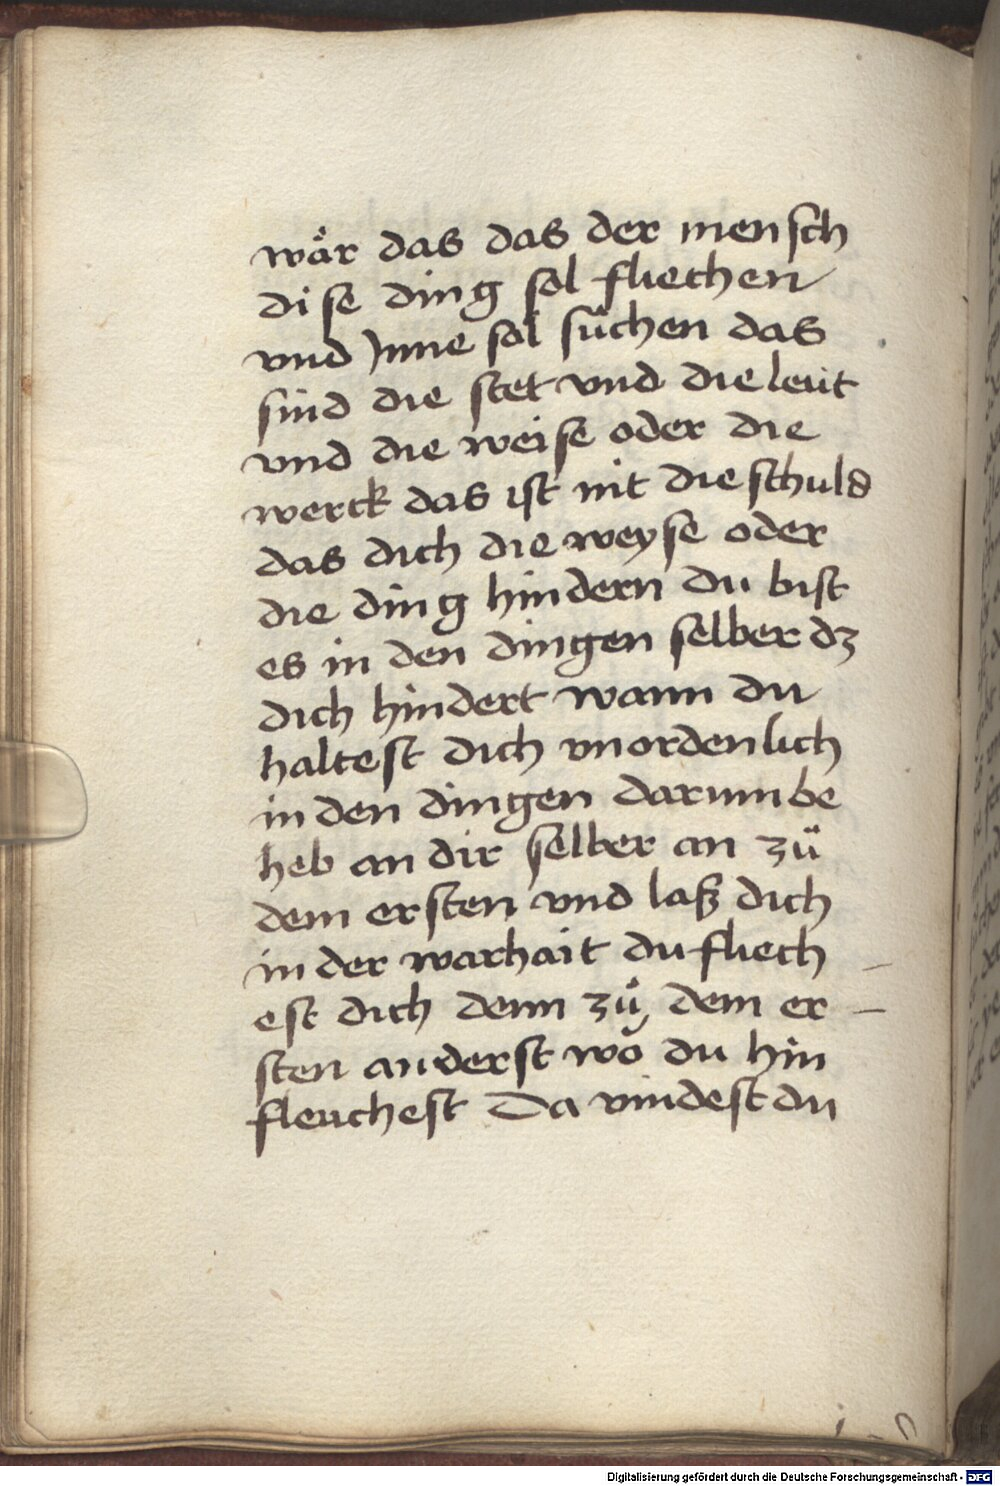 wår das das der mensch
dise ding sol fliechen
vnd Jnne sol sůchen das
sind die stet vnd die leüt
vnd die weise oder die
werck das ist nit die schuld
das dich die weyse oder
die ding hindern du bist
es in den dingen selber dz
dich hindert wann du
haltest dich vnordenlich
in den dingen darumb be
heb an dir selber an zů
dem ersten vnd laß dich
in der warhait du fliech
est dich denn zů dem er
sten anderst wo du hin
fleuchest Da vindest du
Digitalisierung gefördert durch die Deutsche Forschungsgemeinschaft - DFG